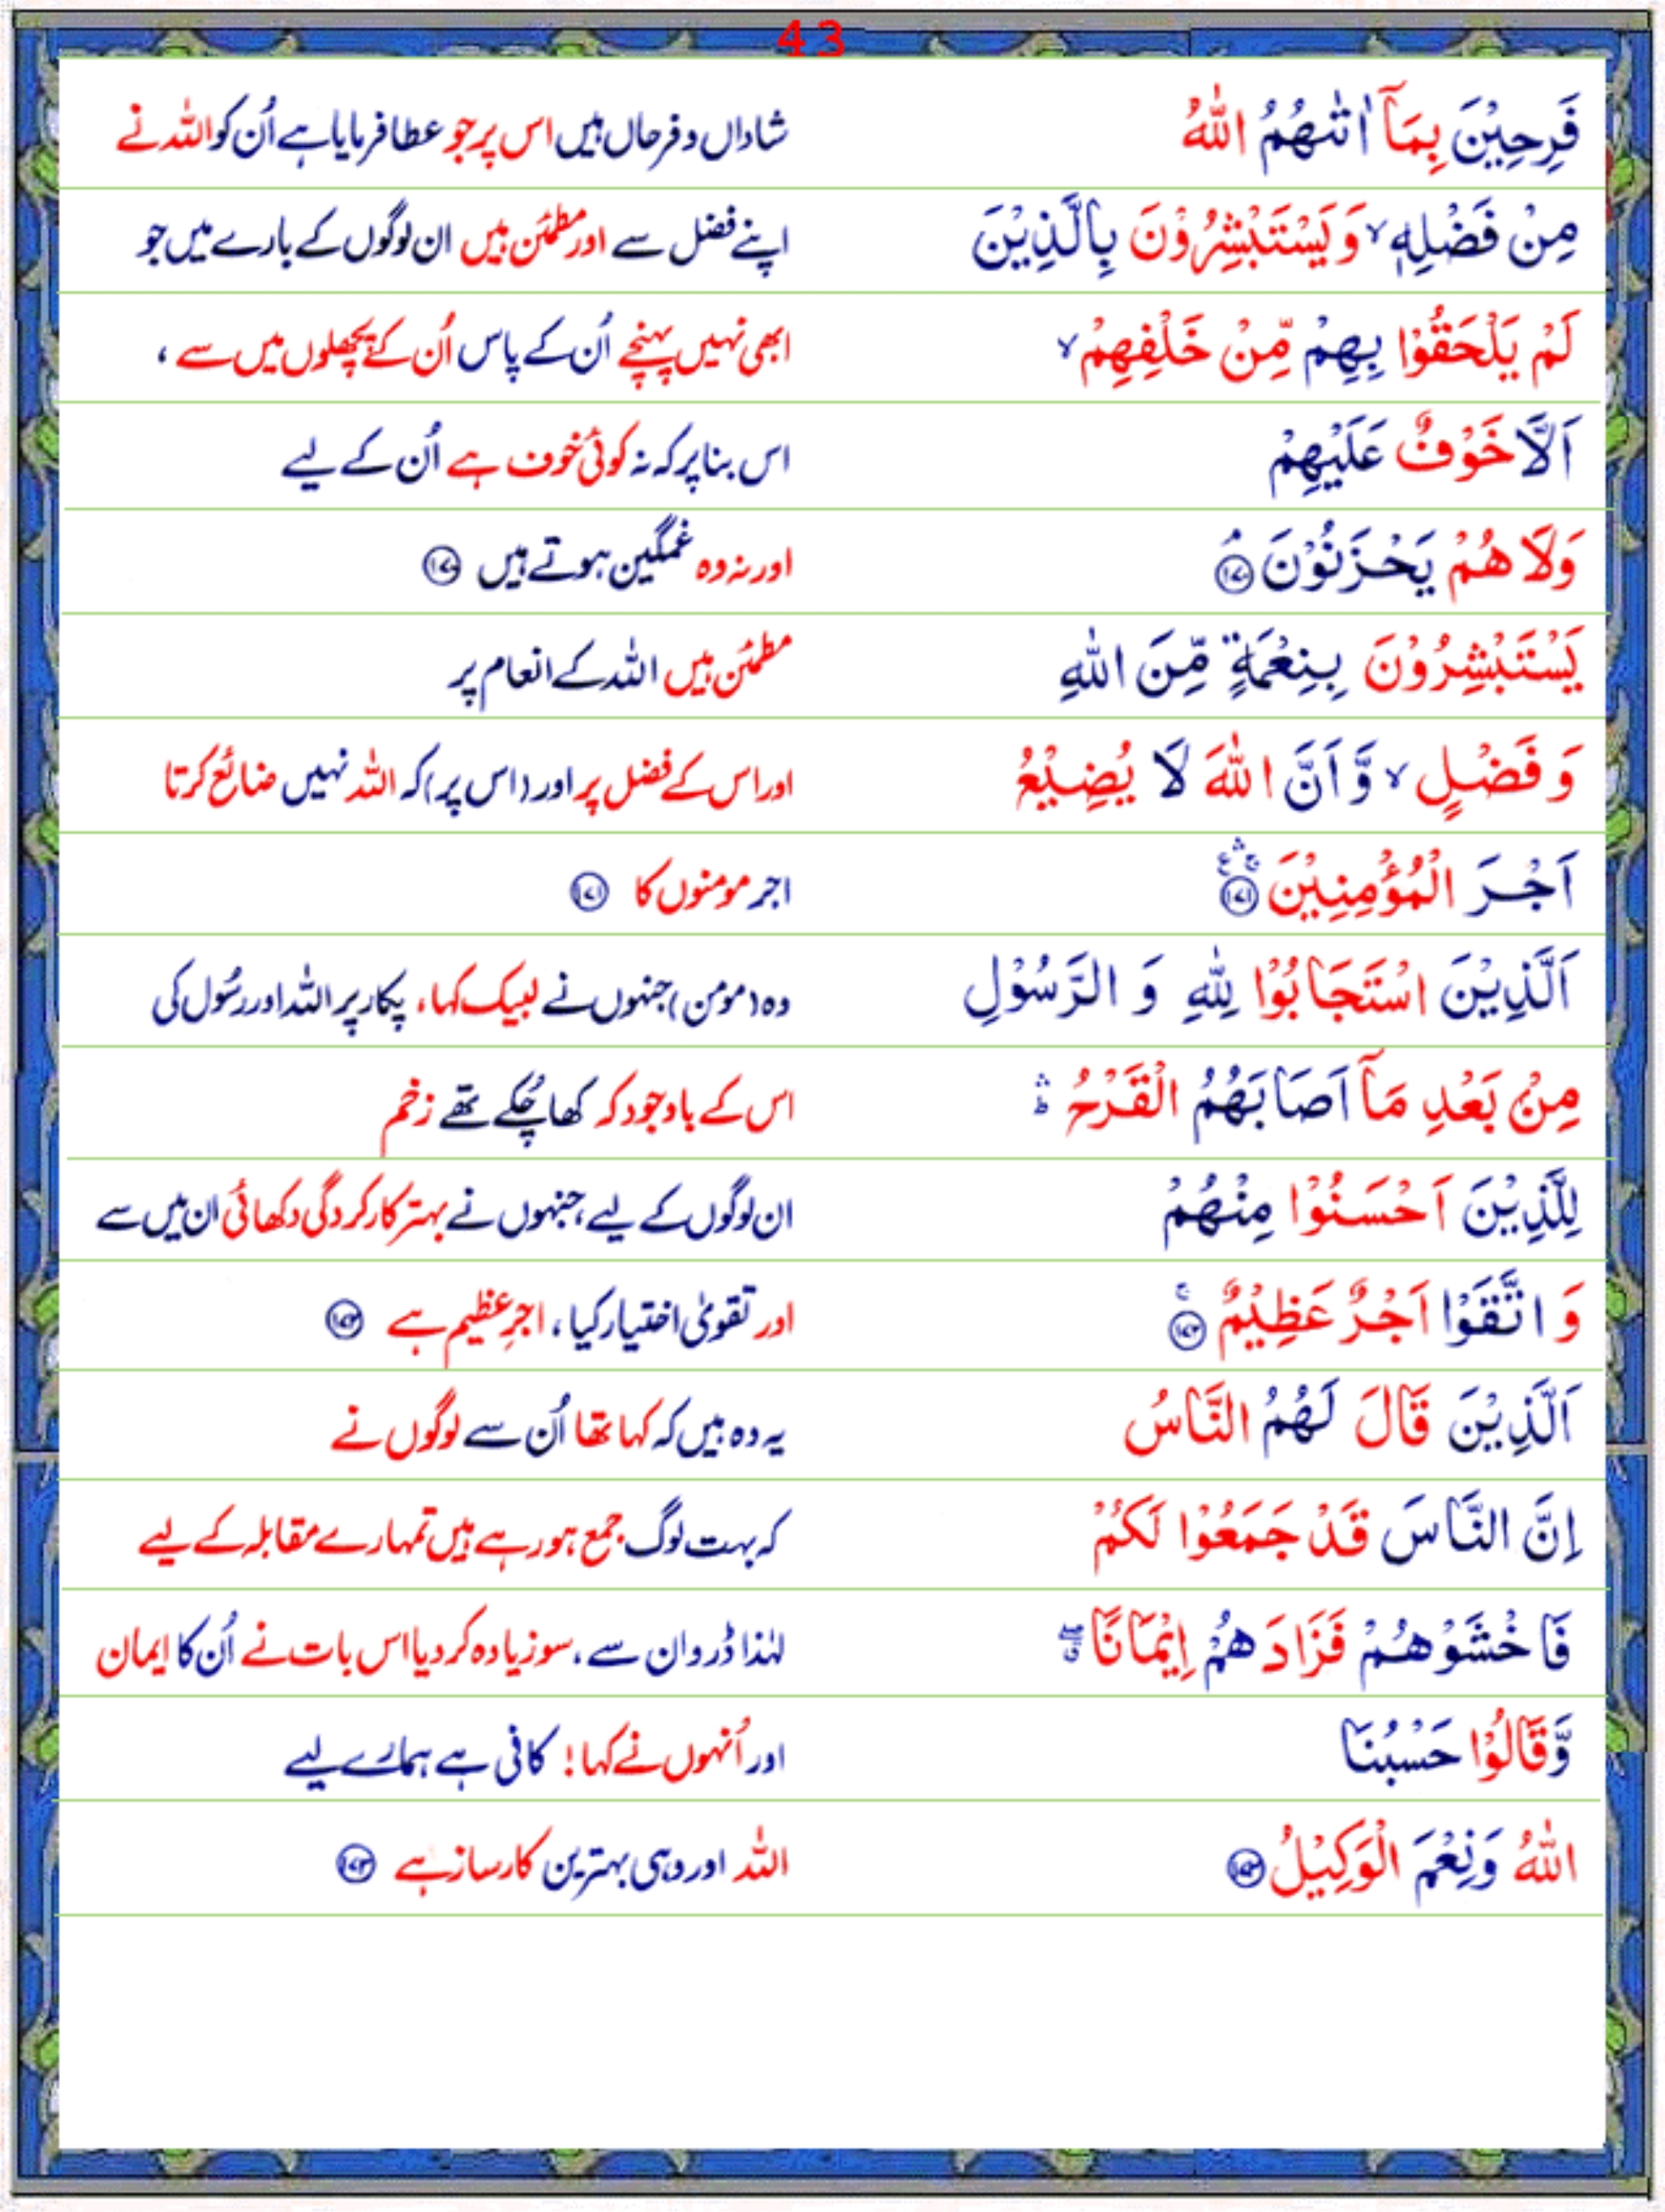 43
فَرِحِيْنَ بِمَآ اٰتٰىهُمُ اللّٰهُ شاداں و فرحاں ہیں اس پر جو عطا فرمایا ہے اُن کو اللہ نے
مِنْ فَضْلِهٖ ۙ وَيَسْتَبْشِرُوْنَ بِالَّذِيْنَ اپنے فضل سے اور مطمئن ہیں ان لوگوں کے بارے میں جو
لَمْ يَلْحَقُوْا بِهِمْ مِّنْ خَلْفِهِمْ ۙ ابھی نہیں پہنچے اُن کے پاس اُن کے پچھلوں میں سے ،
اَلَّا خَوْفٌ عَلَيْهِمْ اس بنا پر کہ نہ کوئی خوف ہے اُن کے لیے
وَلَا هُمْ يَحْزَنُوْنَ ۘ ۝۱۷۰ اور نہ وہ غمگین ہوتے ہیں ۝۱۷۰
يَسْتَبْشِرُوْنَ بِنِعْمَةٍ مِّنَ اللّٰهِ مطمئن ہیں اللہ کے انعام پر
وَ فَضْلٍ ۙ وَّ اَنَّ اللّٰهَ لَا يُضِيْعُ اور اس کے فضل پر اور (اس پر) کہ اللہ نہیں ضائع کرتا
اَجْرَ الْمُؤْمِنِيْنَ ۝۱۷۱ اجر مومنوں کا ۝۱۷۱
اَلَّذِيْنَ اسْتَجَابُوْا لِلّٰهِ وَ الرَّسُوْلِ وہ (مومن) جنہوں نے لبیک کہا، پکار پر اللہ اور رسُول کی
مِنْۢ بَعْدِ مَآ اَصَابَهُمُ الْقَرْحُ ۛؕ اس کے باوجود کہ کھا چُکے تھے زخم
لِلَّذِيْنَ اَحْسَنُوْا مِنْهُمْ ان لوگوں کے لیے ، جنہوں نے بہتر کارکردگی دکھائی ان میں سے
وَ اتَّقَوْا اَجْرٌ عَظِيْمٌ ۚ ۝۱۷۲ اور تقویٰ اختیار کیا ، اجرِ عظیم ہے ۝۱۷۲
اَلَّذِيْنَ قَالَ لَهُمُ النَّاسُ یہ وہ ہیں کہ کہا تھا اُن سے لوگوں نے
اِنَّ النَّاسَ قَدْ جَمَعُوْا لَكُمْ کہ بہت لوگ جمع ہو رہے ہیں تمہارے مقابلہ کے لیے
فَاخْشَوْهُمْ فَزَادَهُمْ اِيْمَانًا ۖق لہٰذا ڈرو ان سے ، سو زیادہ کر دیا اس بات نے اُن کا ایمان
وَّقَالُوْا حَسْبُنَا اور اُنہوں نے کہا! کافی ہے ہمارے لیے
اللّٰهُ وَنِعْمَ الْوَكِيْلُ ۝۱۷۳ اللہ اور وہی بہترین کارساز ہے ۝۱۷۳